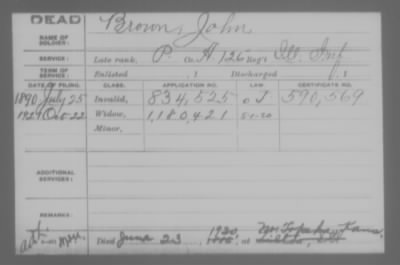 DEAD
NAME OF SOLDIER: Brown, John
SERVICE: Late rank, P Co. A, 125 Reg't Ill. Inf.
TERM OF SERVICE: Enlisted , 1 Discharged , 1
DATE OF FILING. CLASS. APPLICATION NO. LAW CERTIFICATE NO.
1890 July 25 Invalid, 834,525 J 590,569
Oct-22 Widow, 1,180,421 5-1-20
Minor,
ADDITIONAL SERVICES:
REMARKS:
Died June 23, 1920, at N. Topeka, Kans.